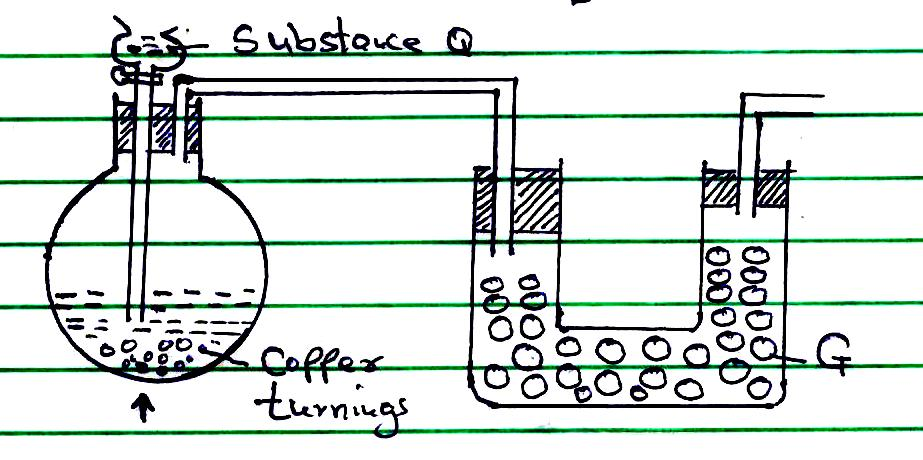 Substance Q
Copper
turnings
G